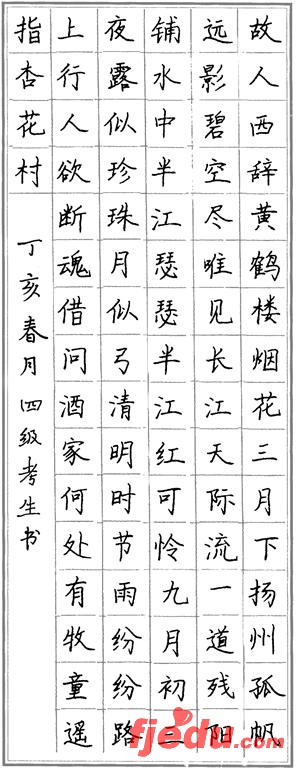 故人西辞黄鹤楼烟花三月下扬州孤帆
远影碧空尽唯见长江天际流一道残阳
铺水中半江瑟瑟半江红可怜九月初三
夜露似珍珠月似弓清明时节雨纷纷路
上行人欲断魂借问酒家何处有牧童遥
指杏花村
丁亥春月四级考生书
fjedu.com